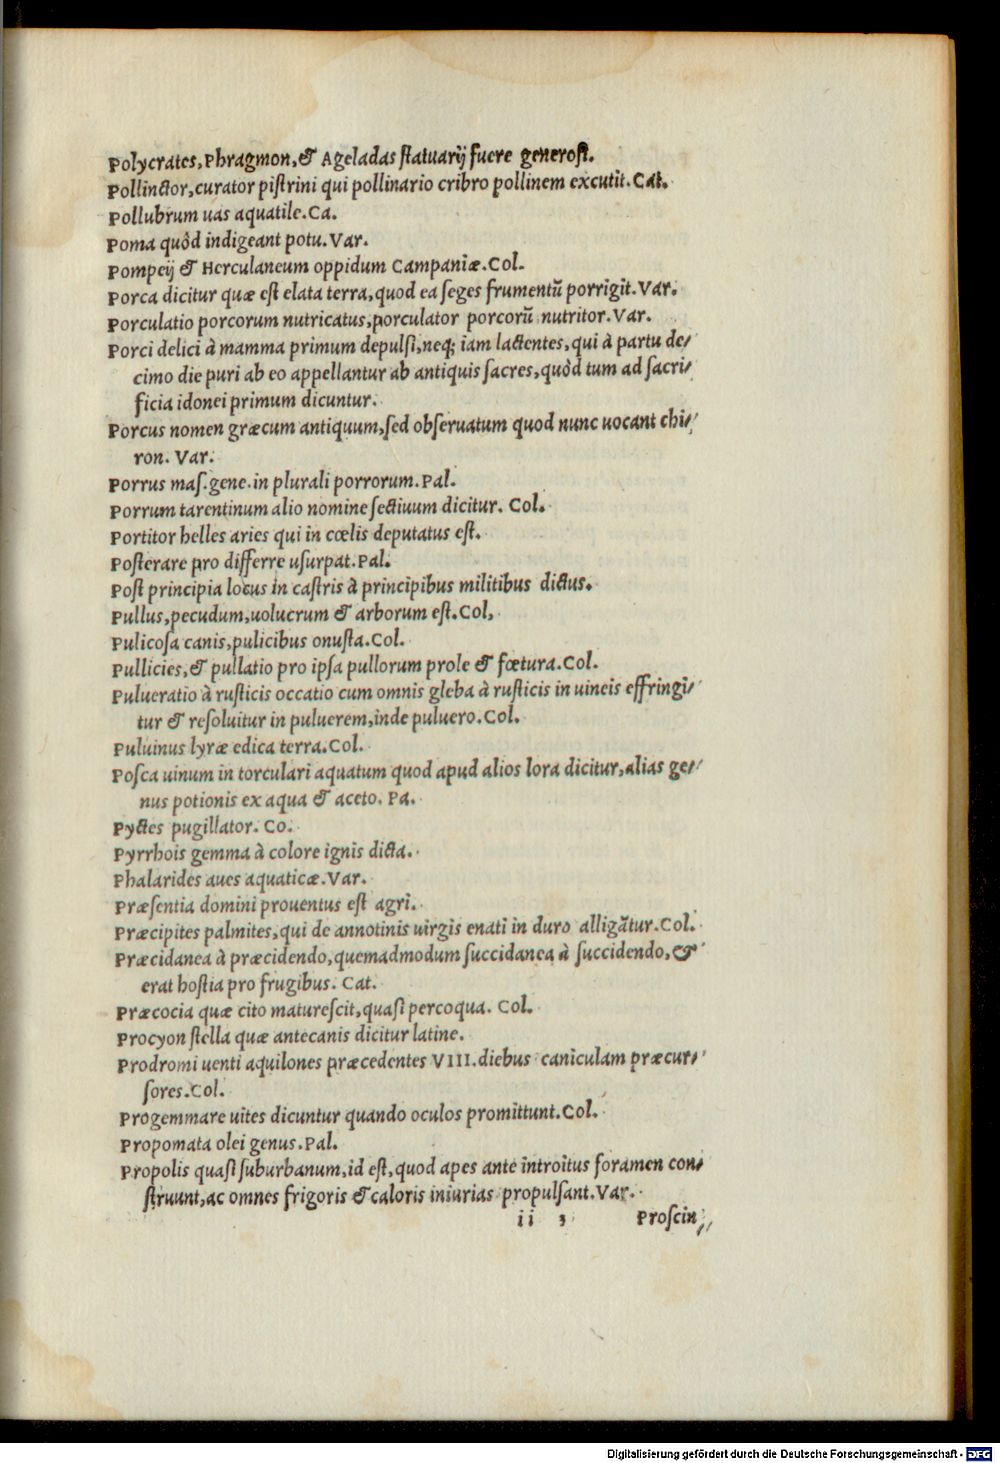 Polycrates, Phragmon, & Ageladas statuarij fuere generosi.
Pollinctor, curator pistrini qui pollinario cribro pollinem excutit. Cat.
Pollubrum uas aquatile. Ca.
Poma quòd indigeant potu. Var.
Pompeij & Herculaneum oppidum Campaniæ. Col.
Porca dicitur quæ est elata terra, quod ea seges frumentũ porrigit. Var.
Porculatio porcorum nutricatus, porculator porcorũ nutritor. Var.
Porci delici à mamma primum depulsi, neq; iam lactentes, qui à partu de/
cimo die puri ab eo appellantur ab antiquis sacres, quòd tum ad sacri/
ficia idonei primum dicuntur.
Porcus nomen græcum antiquum, sed obseruatum quod nunc uocant chi/
ron. Var.
Porrus mas. gene. in plurali porrorum. Pal.
Porrum tarentinum alio nomine sectiuum dicitur. Col.
Portitor helles aries qui in cœlis deputatus est.
Posterare pro differre usurpat. Pal.
Post principia locus in castris à principibus militibus dictus.
Pullus, pecudum, uolucrum & arborum est. Col.
Pulicosa canis, pulicibus onusta. Col.
Pullicies, & pullatio pro ipsa pullorum prole & fœtura. Col.
Pulueratio à rusticis occatio cum omnis gleba à rusticis in uineis effringi/
tur & resoluitur in puluerem, inde puluero. Col.
Puluinus lyræ edica terra. Col.
Posca uinum in torculari aquatum quod apud alios lora dicitur, alias ge/
nus potionis ex aqua & aceto. Pa.
Pyctes pugillator. Co.
Pyrrhois gemma à colore ignis dicta.
Phalarides aues aquaticæ. Var.
Præsentia domini prouentus est agri.
Præcipites palmites, qui de annotinis uirgis enati in duro alligãtur. Col.
Præcidanea à præcidendo, quemadmodum succidanea à succidendo, &
erat hostia pro frugibus. Cat.
Præcocia quæ cito maturescit, quasi percoqua. Col.
Procyon stella quæ antecanis dicitur latine.
Prodromi uenti aquilones præcedentes VIII. diebus caniculam præcur/
sores. Col.
Progemmare uites dicuntur quando oculos promittunt. Col.
Propomata olei genus. Pal.
Propolis quasi suburbanum, id est, quod apes ante introitus foramen con/
struunt, ac omnes frigoris & caloris iniurias propulsant. Var.
ii 3 Proscin//
Digitalisierung gefördert durch die Deutsche Forschungsgemeinschaft - DFG